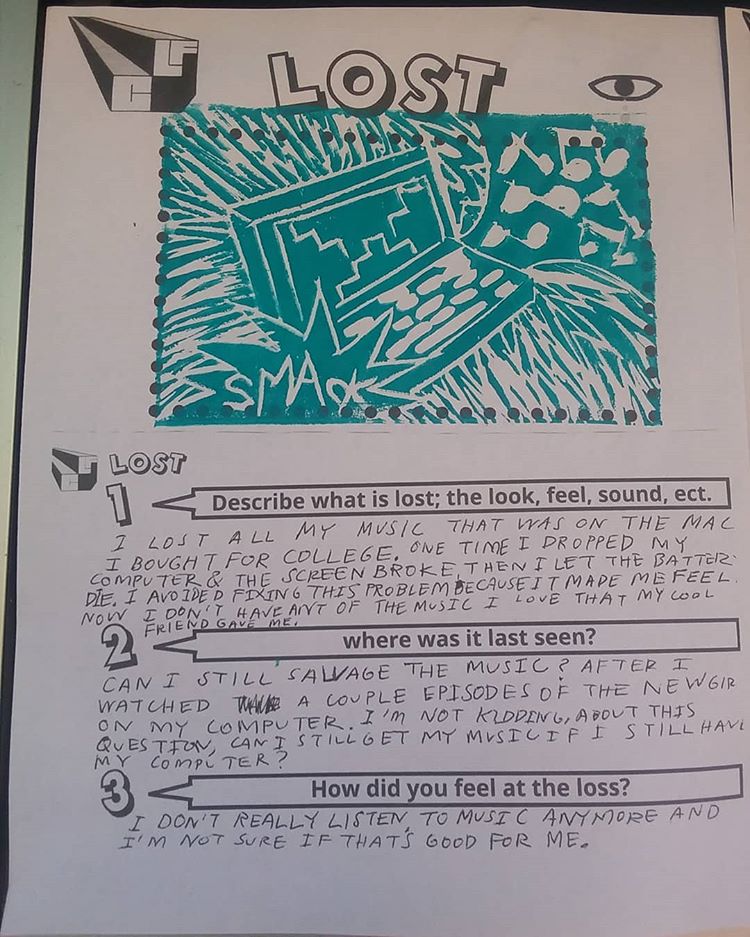 LFC
LOST
SMACK
LFC LOST
1 Describe what is lost; the look, feel, sound, ect.
I LOST ALL MY MUSIC THAT WAS ON THE MAC
I BOUGHT FOR COLLEGE. ONE TIME I DROPPED MY
COMPUTER & THE SCREEN BROKE, THEN I LET THE BATTER
DIE. I AVOIDED FIXING THIS PROBLEM BECAUSE IT MADE ME FEEL
NOW I DON'T HAVE ANY OF THE MUSIC I LOVE THAT MY COOL
FRIEND GAVE ME.
2 where was it last seen?
CAN I STILL SALVAGE THE MUSIC? AFTER I
WATCHED A COUPLE EPISODES OF THE NEW GIR
ON MY COMPUTER. I'M NOT KIDDING, ABOUT THIS
QUESTION, CAN I STILL GET MY MUSIC IF I STILL HAVE
MY COMPUTER?
3 How did you feel at the loss?
I DON'T REALLY LISTEN TO MUSIC ANYMORE AND
I'M NOT SURE IF THAT'S GOOD FOR ME.